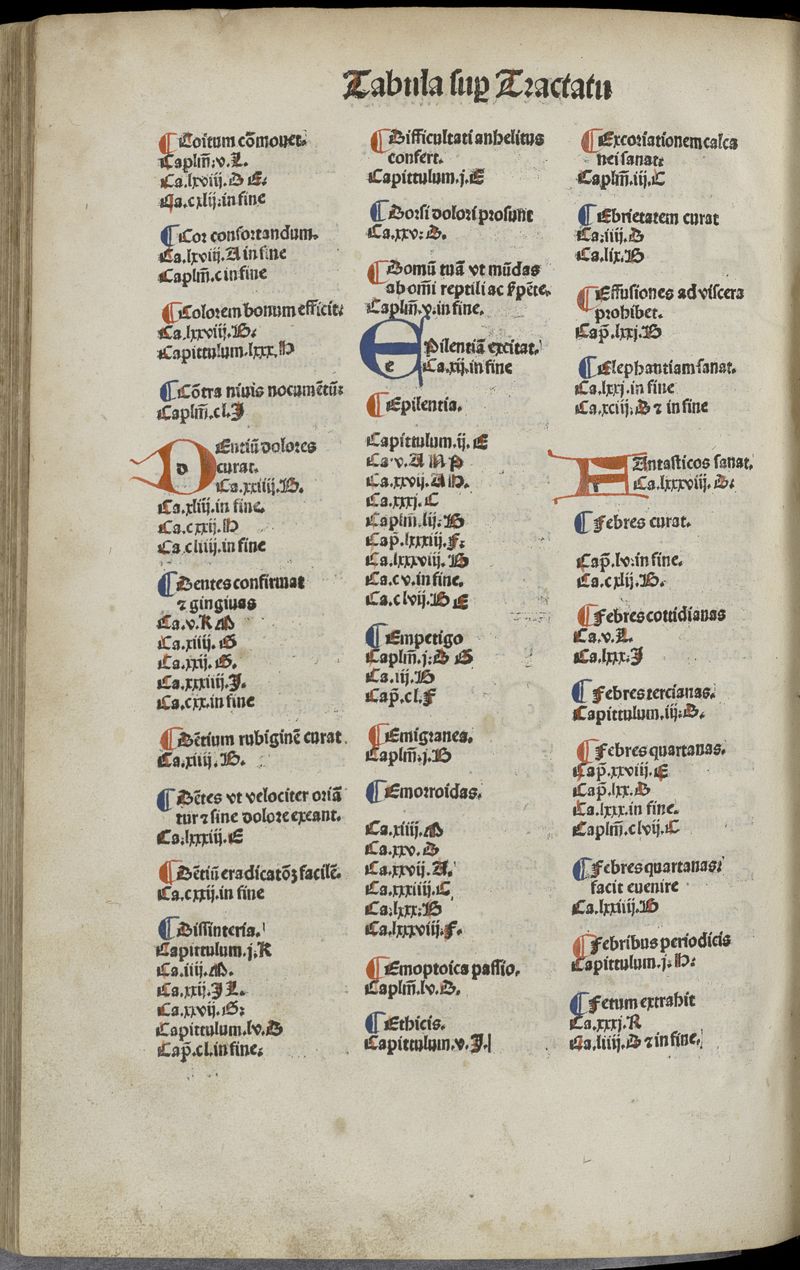 Tabula sup Tractatu
Coitum cōmouet.
Caplm̄.v.L.
Ca.lxviij.D E.
Ca.cxlij.in fine
Cor confortandum.
Ca.lxviij.A in fine
Caplm̄.c in fine
Colorem bonum efficit.
Ca.lxxviij.B.
Capittulum.lxx.H
Cōtra niuis nocumētū:
Caplm̄.cl.J
DEntiū dolores
curat.
Ca.xxiiij.B.
Ca.xliij.in fine.
Ca.cxxij.H
Ca cliiij.in fine
Dentes confirmat
⁊ gingiuas
Ca.v.K M
Ca.xiiij.G
Ca.xxij.G.
Ca.xxxiiij.J.
Ca.cxx.in fine
Dētium rubiginē curat
Ca.xiiij.B.
Dētes vt velociter oriā
tur ⁊ sine dolore exeant.
Ca.lxxxiij.E
Dētiū eradicatōꝫ facilē.
Ca.cxxij.in fine
Dissinteria.
Capittulum.j.K
Ca.iiij.M.
Ca.xxij.J L.
Ca.xxvij.G:
Capittulum.lv.D
Cap̄.cl.in fine:
Difficultati anhelitus
confert.
Capittulum.j.E
Dorsi dolori prosunt
Ca.xxv:D.
Domū tuā vt mūdas
ab omi reptili ac ẜpēte.
Caplm̄.v.in fine.
EPilentiā excitat.
Ca.xij.in fine
Epilentia.
Capittulum.ij.E
Ca.v.A N P
Ca.xxvij.A H.
Ca.xxxj.C
Caplm̄.lij.B
Cap̄.lxxxiij.F:
Ca.lxxxviij.B
Ca.c v.in fine.
Ca.c lvij.B E
Empetigo
Caplm̄.j:D G
Ca.iij.B
Cap̄.cl.F
Emigranea.
Caplm̄.j.B
Emorroidas.
Ca.xiiij.M
Ca.xxv.D
Ca.xxvij.A.
Ca.xxxiiij.C
Ca.lxxx:B
Ca.lxxxviij.F.
Emoptoica passio.
Caplm̄.lv.D.
Ethicis.
Capittulum.v.J.
Excoriationem calca
nei sanat.
Caplm̄.iij.C
Ebrietatem curat
Ca.iiij.D
Ca.lix.B
Effusiones ad viscera
prohibet.
Cap̄.lxxj.B
Elephantiam sanat.
Ca.lxxj.in fine
Ca.xciij.D ⁊ in fine
FAntasticos sanat.
Ca.lxxxviij.D:
Febres curat.
Cap̄.lv.in fine.
Ca.cxlij.B.
Febres cottidianas
Ca.v.L.
Ca.lxxx.J
Febres tercianas.
Capittulum.iij.D.
Febres quartanas.
Cap̄.xxviij.E
Cap̄.lxx.D
Ca.lxxx.in fine.
Caplm̄.c lvij.C
Febres quartanas:
facit euenire
Ca.lxxiiij.B
Febribus periodicis
Capittulum.j.H:
Fetum extrahit
Ca.xxxj.K
Ca.liiij.D ⁊ in fine.